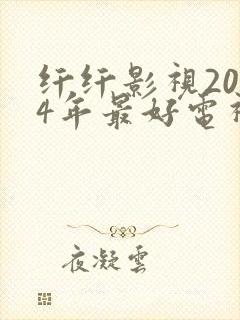 纤纤影視20
4年最好電視
夜凝雲